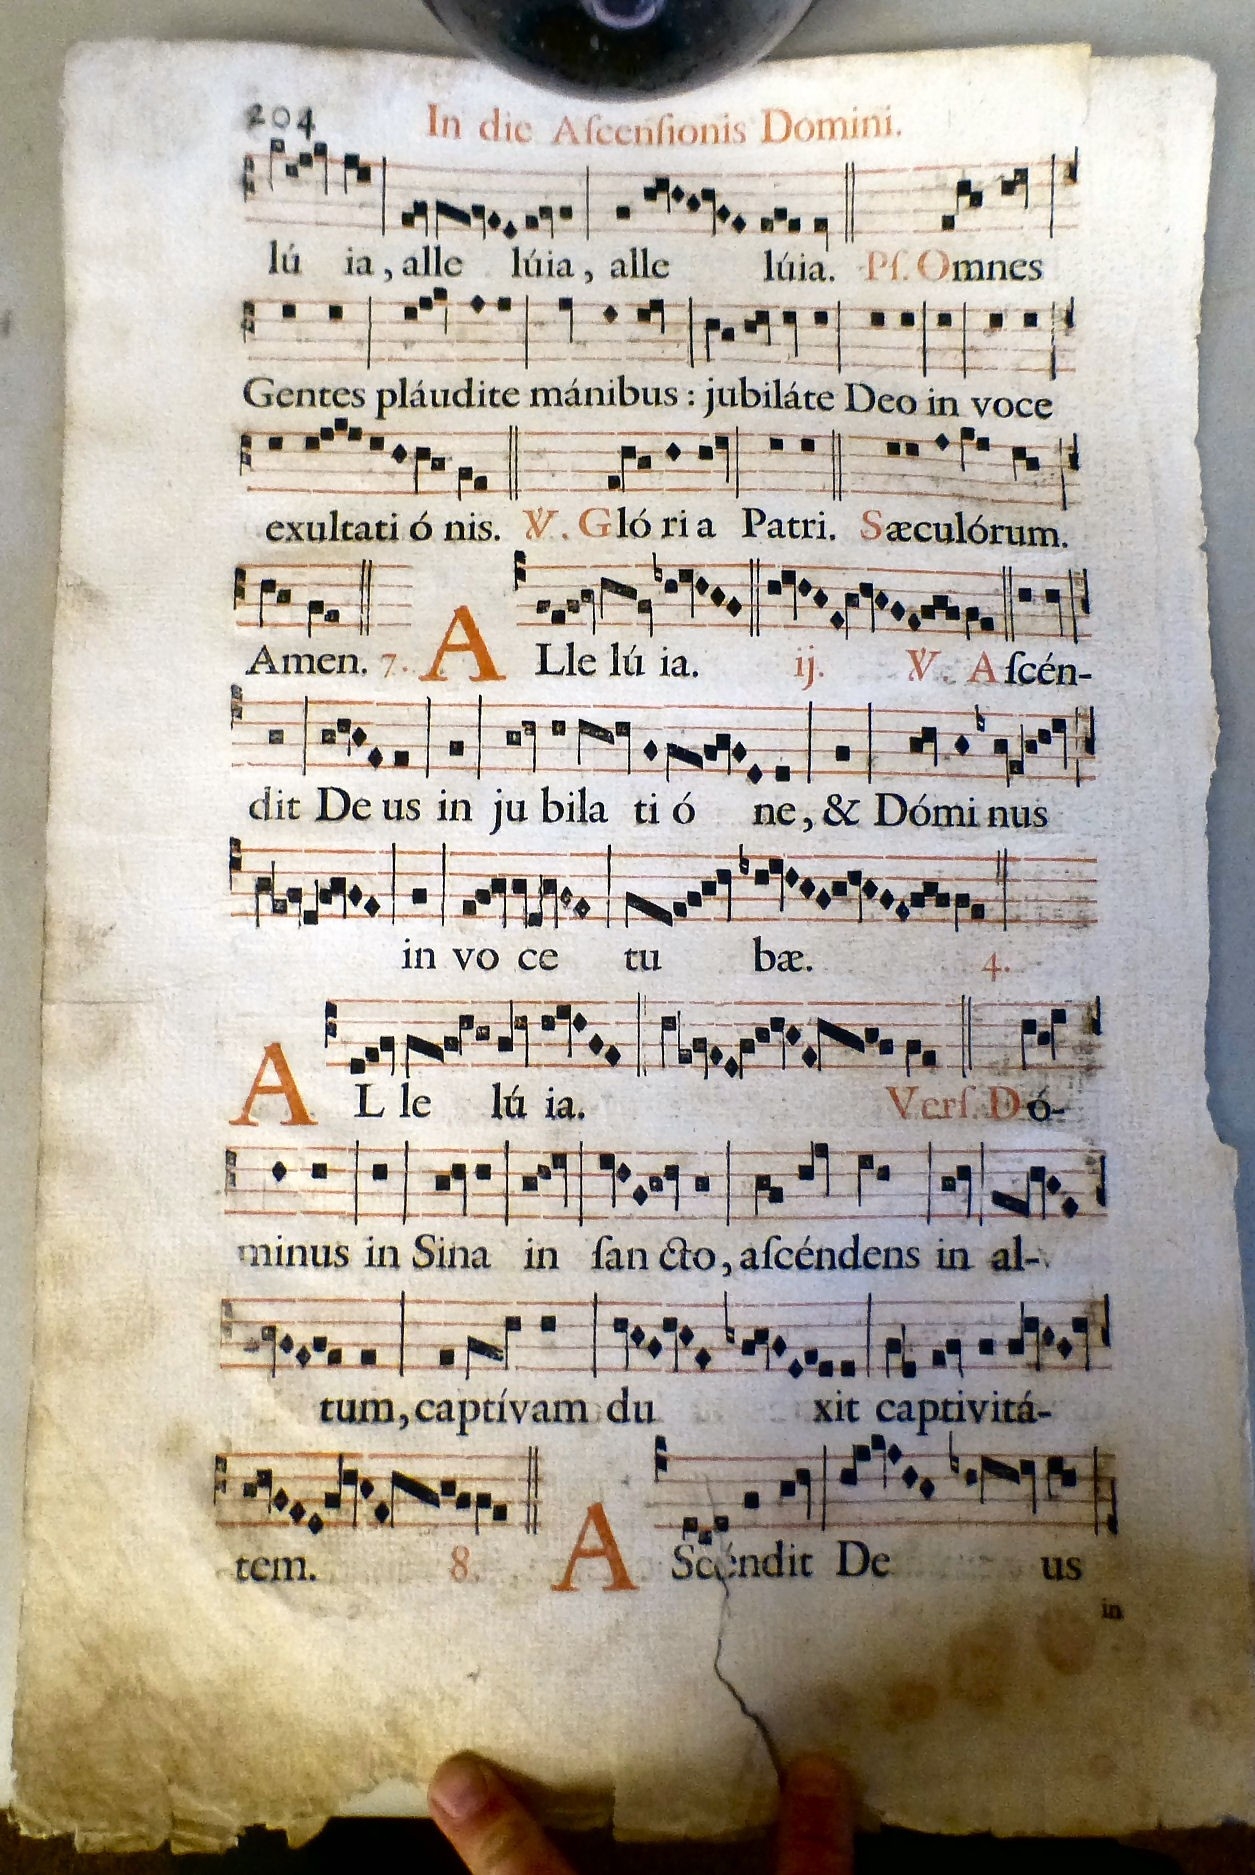 204 In die Aſcenſionis Domini.
lú ia, alle lúia, alle lúia. Pſ. Omnes
Gentes pláudite mánibus : jubiláte Deo in voce
exultati ó nis. ℣. Gló ri a Patri. Sæculórum.
Amen. 7. A Lle lú ia. ij. ℣. Aſcén-
dit De us in ju bila ti ó ne, & Dómi nus
in vo ce tu bæ. 4.
A L le lú ia. Verſ. Dó-
minus in Sina in ſan cto, aſcéndens in al-
tum, captívam du xit captivitá-
tem. 8. A Scéndit De us
in